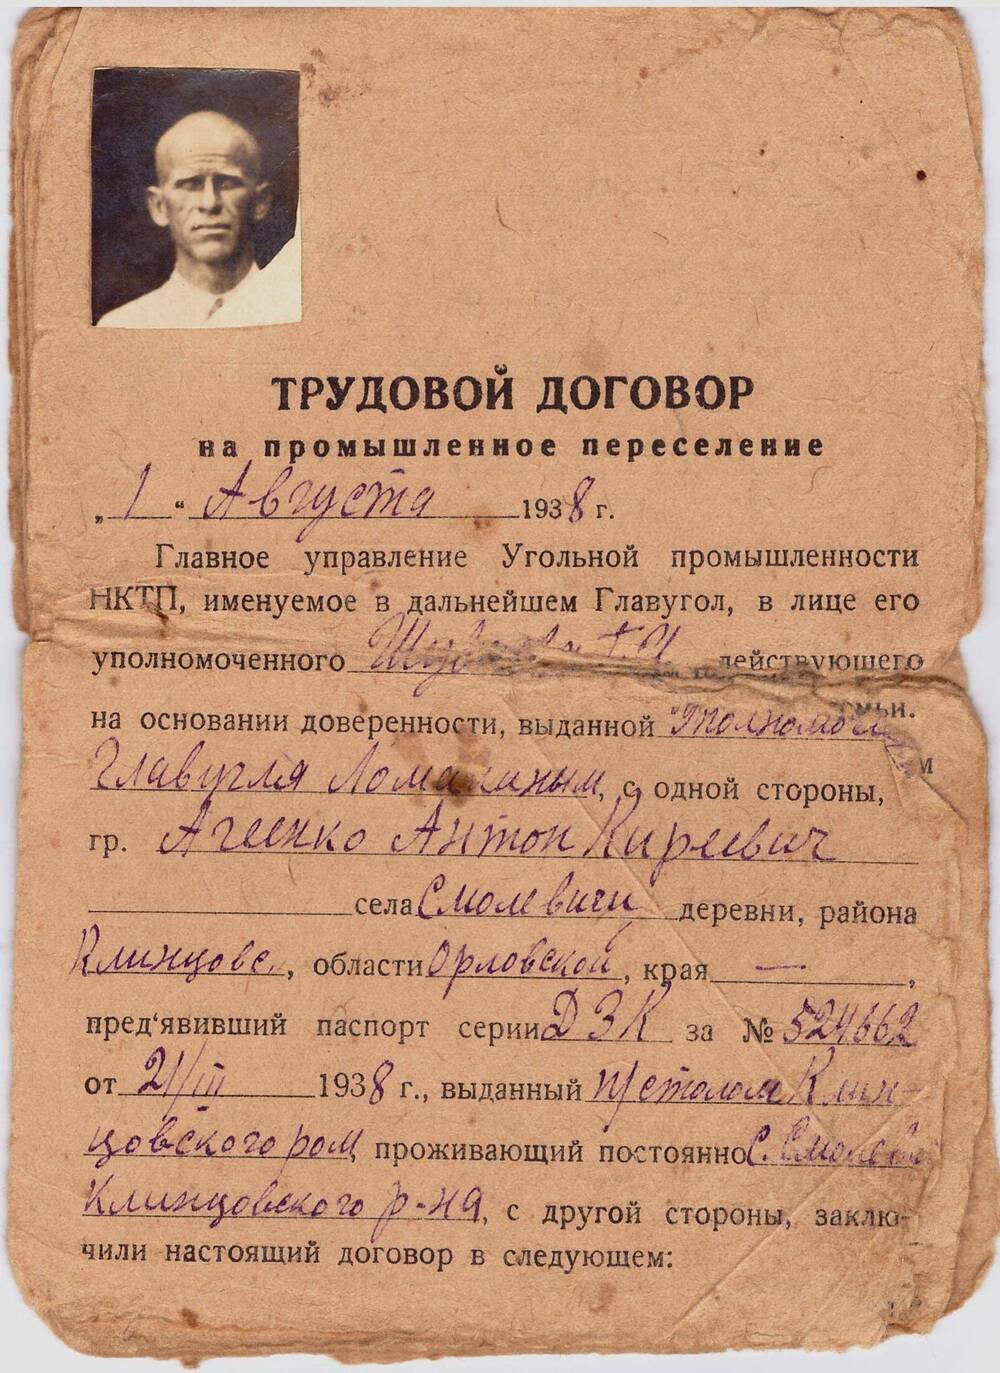 ТРУДОВОЙ ДОГОВОР
на промышленное переселение
„1“ Августа 1938 г.
Главное управление Угольной промышленности
НКТП, именуемое в дальнейшем Главугол, в лице его
уполномоченного действующего
на основании доверенности, выданной
Главугля Ломакиным, с одной стороны,
гр. Агеенко Антон Киреевич
села Смолевичи деревни, района
Клинцовс., области Орловской, края —,
пред‘явивший паспорт серии ДЗК за № 524662
от 21/III 1938 г., выданный п/столом Клин-
цовского ром, проживающий постоянно С.
Клинцовского р-на, с другой стороны, заклю-
чили настоящий договор в следующем: